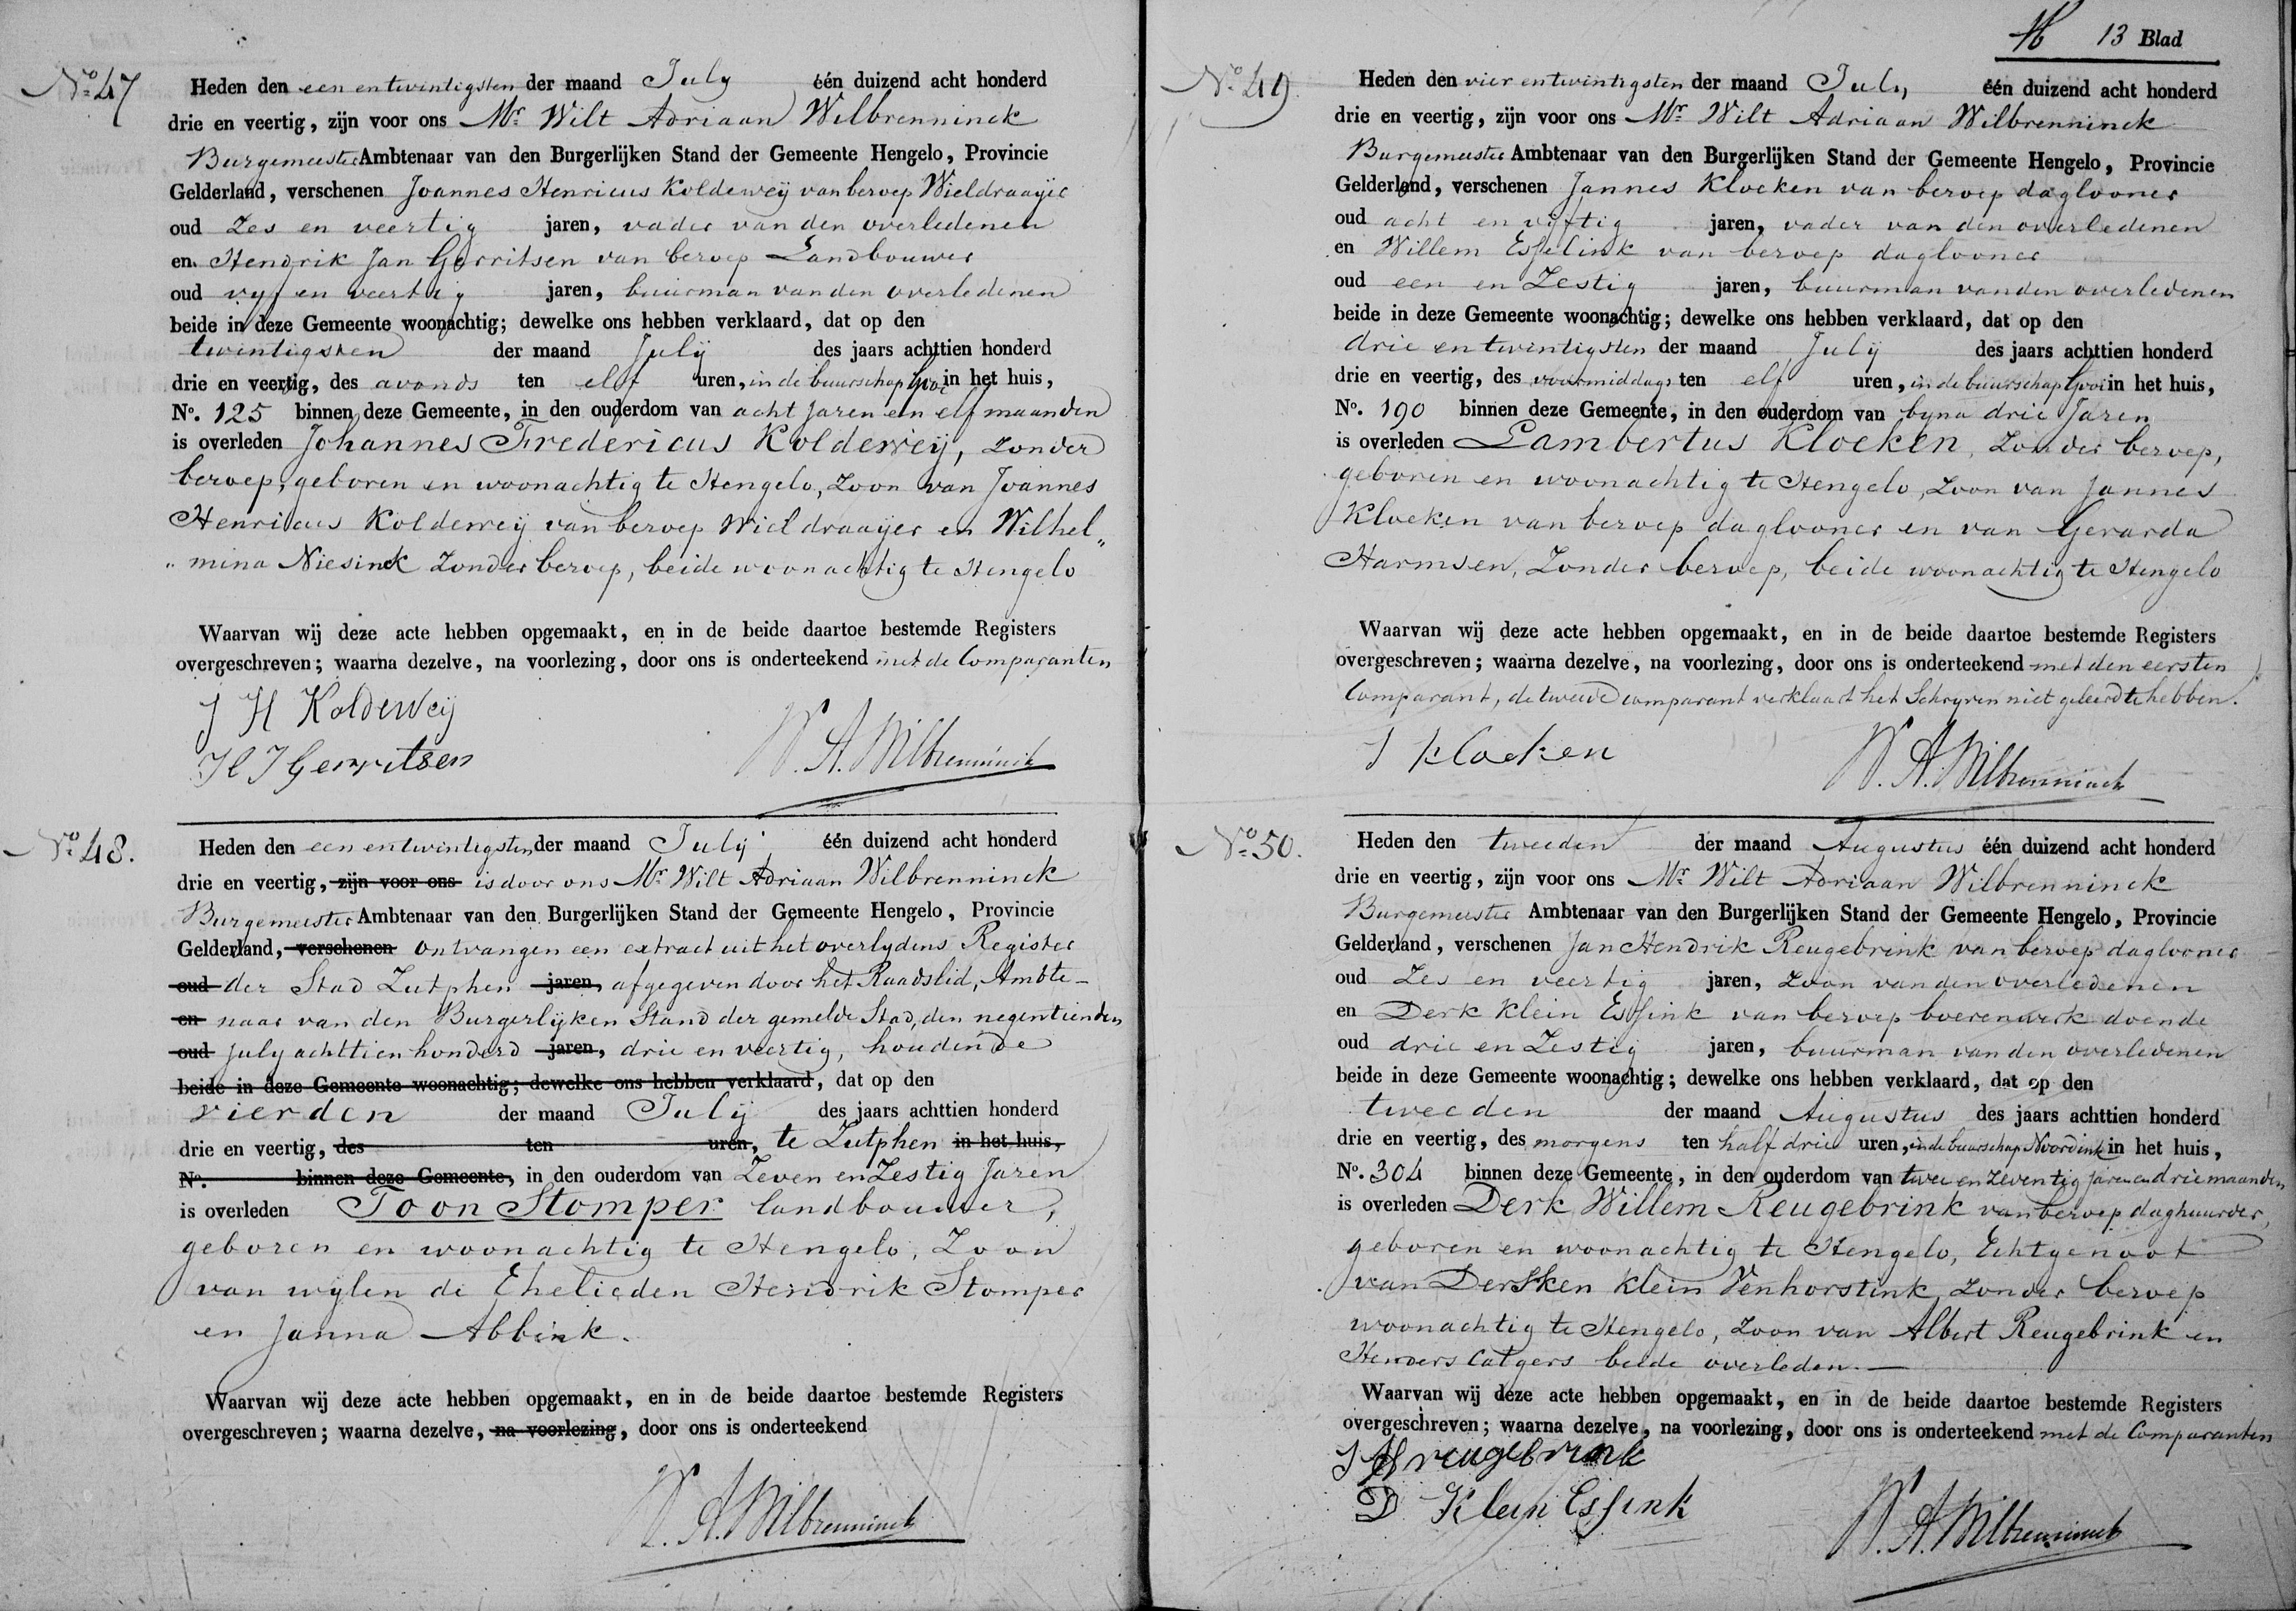 No. 47
Heden den een en twintigsten der maand July één duizend acht honderd
drie en veertig, zijn voor ons Mr. Wilt Adriaan Wilbrenninck
Burgemeester Ambtenaar van den Burgerlijken Stand der Gemeente Hengelo, Provincie
Gelderland, verschenen Joannes Henricus Koldeweij van beroep Wieldraayer
oud Zes en veertig jaren, vader van den overledenen
en Hendrik Jan Gerritsen van beroep Landbouwer
oud vyf en veertig jaren, buurman van den overledenen
beide in deze Gemeente woonachtig; dewelke ons hebben verklaard, dat op den
twintigsten der maand July des jaars achttien honderd
drie en veertig, des avonds ten elf uren, in de buurschap Gooi in het huis,
No. 125 binnen deze Gemeente, in den ouderdom van acht Jaren en elf maanden
is overleden Johannes Fredericus Koldeweij, zonder
beroep, geboren en woonachtig te Hengelo, Zoon van Joannes
Henricus Koldeweij van beroep Wieldraayer en Wilhel„
„mina Niesinck Zonder beroep, beide woonachtig te Hengelo
Waarvan wij deze acte hebben opgemaakt, en in de beide daartoe bestemde Registers
overgeschreven; waarna dezelve, na voorlezing, door ons is onderteekend met de Comparanten
J H Koldeweij
H J Gerritsen
W. A. Wilbrenninck
No. 48.
Heden den een en twintigsten der maand July één duizend acht honderd
drie en veertig, zijn voor ons is door ons Mr. Wilt Adriaan Wilbrenninck
Burgemeester Ambtenaar van den Burgerlijken Stand der Gemeente Hengelo, Provincie
Gelderland, verschenen ontvangen een extract uit het overlydens Register
oud der Stad Zutphen jaren, afgegeven door het Raadslid, Ambte-
en naar van den Burgerlyken Stand der gemelde Stad, den negentienden
oud July achttien honderd jaren, drie en veertig, houdende
beide in deze Gemeente woonachtig; dewelke ons hebben verklaard, dat op den
vierden der maand July des jaars achttien honderd
drie en veertig, des ten uren, te Zutphen in het huis,
No. binnen deze Gemeente, in den ouderdom van Zeven en Zestig Jaren
is overleden Toon Stomper landbouwer,
geboren en woonachtig te Hengelo, Zoon
van wylen de Ehelieden Hendrik Stomper
en Janna Abbink.
Waarvan wij deze acte hebben opgemaakt, en in de beide daartoe bestemde Registers
overgeschreven; waarna dezelve, na voorlezing, door ons is onderteekend
W. A. Wilbrenninck
13 Blad
No. 49.
Heden den vier en twintigsten der maand July één duizend acht honderd
drie en veertig, zijn voor ons Mr. Wilt Adriaan Wilbrenninck
Burgemeester Ambtenaar van den Burgerlijken Stand der Gemeente Hengelo, Provincie
Gelderland, verschenen Jannes Kloeken van beroep daglooner
oud acht en vijftig jaren, vader van den overledenen
en Willem Esselink van beroep daglooner
oud een en Zestig jaren, buurman van den overledenen
beide in deze Gemeente woonachtig; dewelke ons hebben verklaard, dat op den
drie en twintigsten der maand July des jaars achttien honderd
drie en veertig, des voormiddags ten elf uren, in de buurschap Gooi in het huis,
No. 190 binnen deze Gemeente, in den ouderdom van byna drie Jaren
is overleden Lambertus Kloeken, Zonder beroep,
geboren en woonachtig te Hengelo, Zoon van Jannes
Kloeken van beroep daglooner en van Gerarda
Harmsen, Zonder beroep, beide woonachtig te Hengelo
Waarvan wij deze acte hebben opgemaakt, en in de beide daartoe bestemde Registers
overgeschreven; waarna dezelve, na voorlezing, door ons is onderteekend met den eersten
Comparant, de tweede comparant verklaart het Schryven niet geleerd te hebben.
J Kloeken
W. A. Wilbrenninck
No. 50.
Heden den tweeden der maand Augustus één duizend acht honderd
drie en veertig, zijn voor ons Mr. Wilt Adriaan Wilbrenninck
Burgemeester Ambtenaar van den Burgerlijken Stand der Gemeente Hengelo, Provincie
Gelderland, verschenen Jan Hendrik Reugebrink van beroep daglooner
oud Zes en veertig jaren, Zoon van den overledenen
en Derk Klein Essink van beroep boerenwerk doende
oud drie en Zestig jaren, buurman van den overledenen
beide in deze Gemeente woonachtig; dewelke ons hebben verklaard, dat op den
tweeden der maand Augustus des jaars achttien honderd
drie en veertig, des morgens ten half drie uren, in de buurschap Noordink in het huis,
No. 304 binnen deze Gemeente, in den ouderdom van twee en Zeventig Jaren en drie maanden
is overleden Derk Willem Reugebrink van beroep daghuurder,
geboren en woonachtig te Hengelo, Echtgenoot
van Dersken Klein Venhorstink, Zonder beroep
woonachtig te Hengelo, Zoon van Albert Reugebrink en
Henders Catgers beide overleden.
Waarvan wij deze acte hebben opgemaakt, en in de beide daartoe bestemde Registers
overgeschreven; waarna dezelve, na voorlezing, door ons is onderteekend met de Comparanten
J H reugebrink
D Klein Essink
W. A. Wilbrenninck